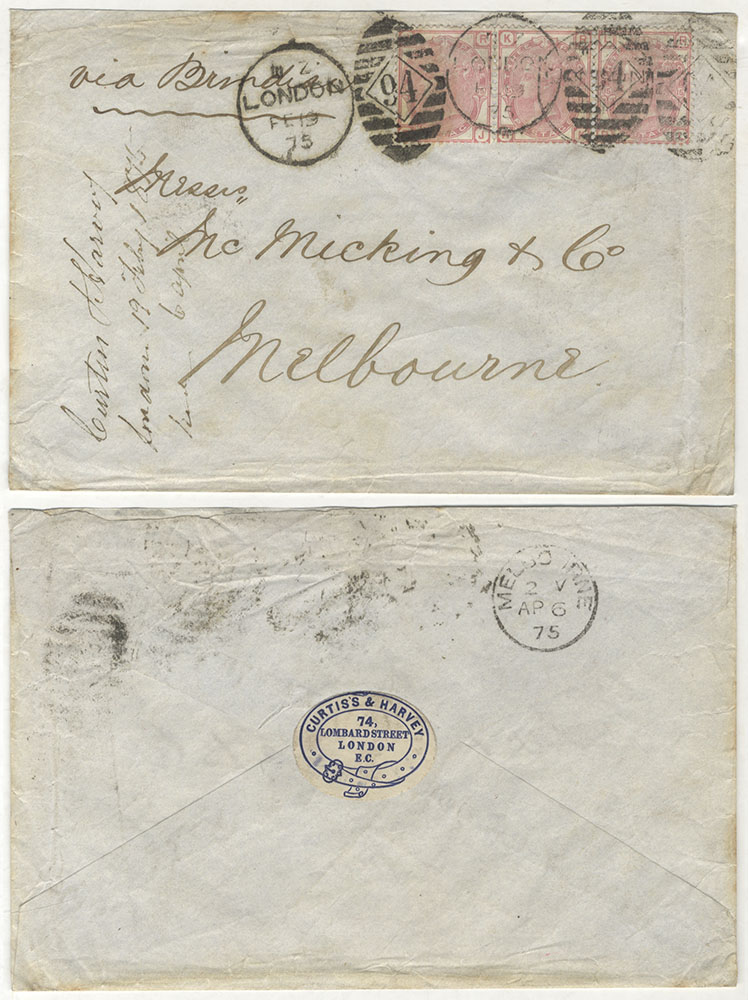 via Brindisi
LONDON
FE 19
75
94
LONDON
75
94
Messrs,,
Mc Micking & Co
Melbourne
Curtis & Harvey
London 19 Feby 1875
6 April
MELBOURNE
2 V
AP 6
75
CURTIS'S & HARVEY
74,
LOMBARD STREET
LONDON
E.C.